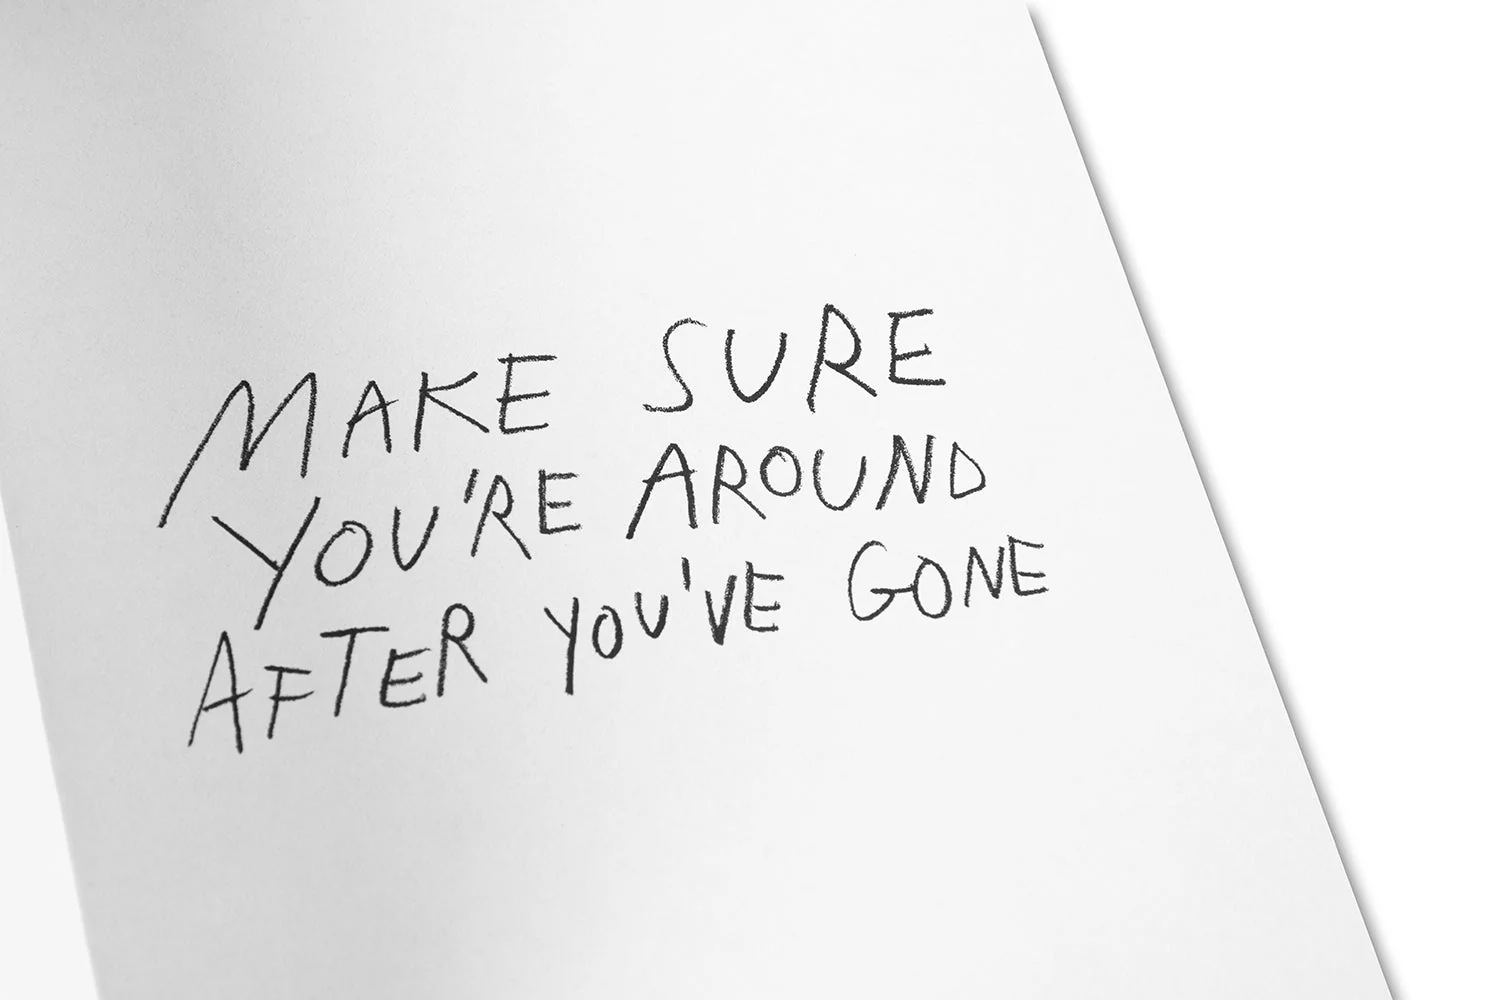 MAKE SURE
YOU'RE AROUND
AFTER YOU'VE GONE